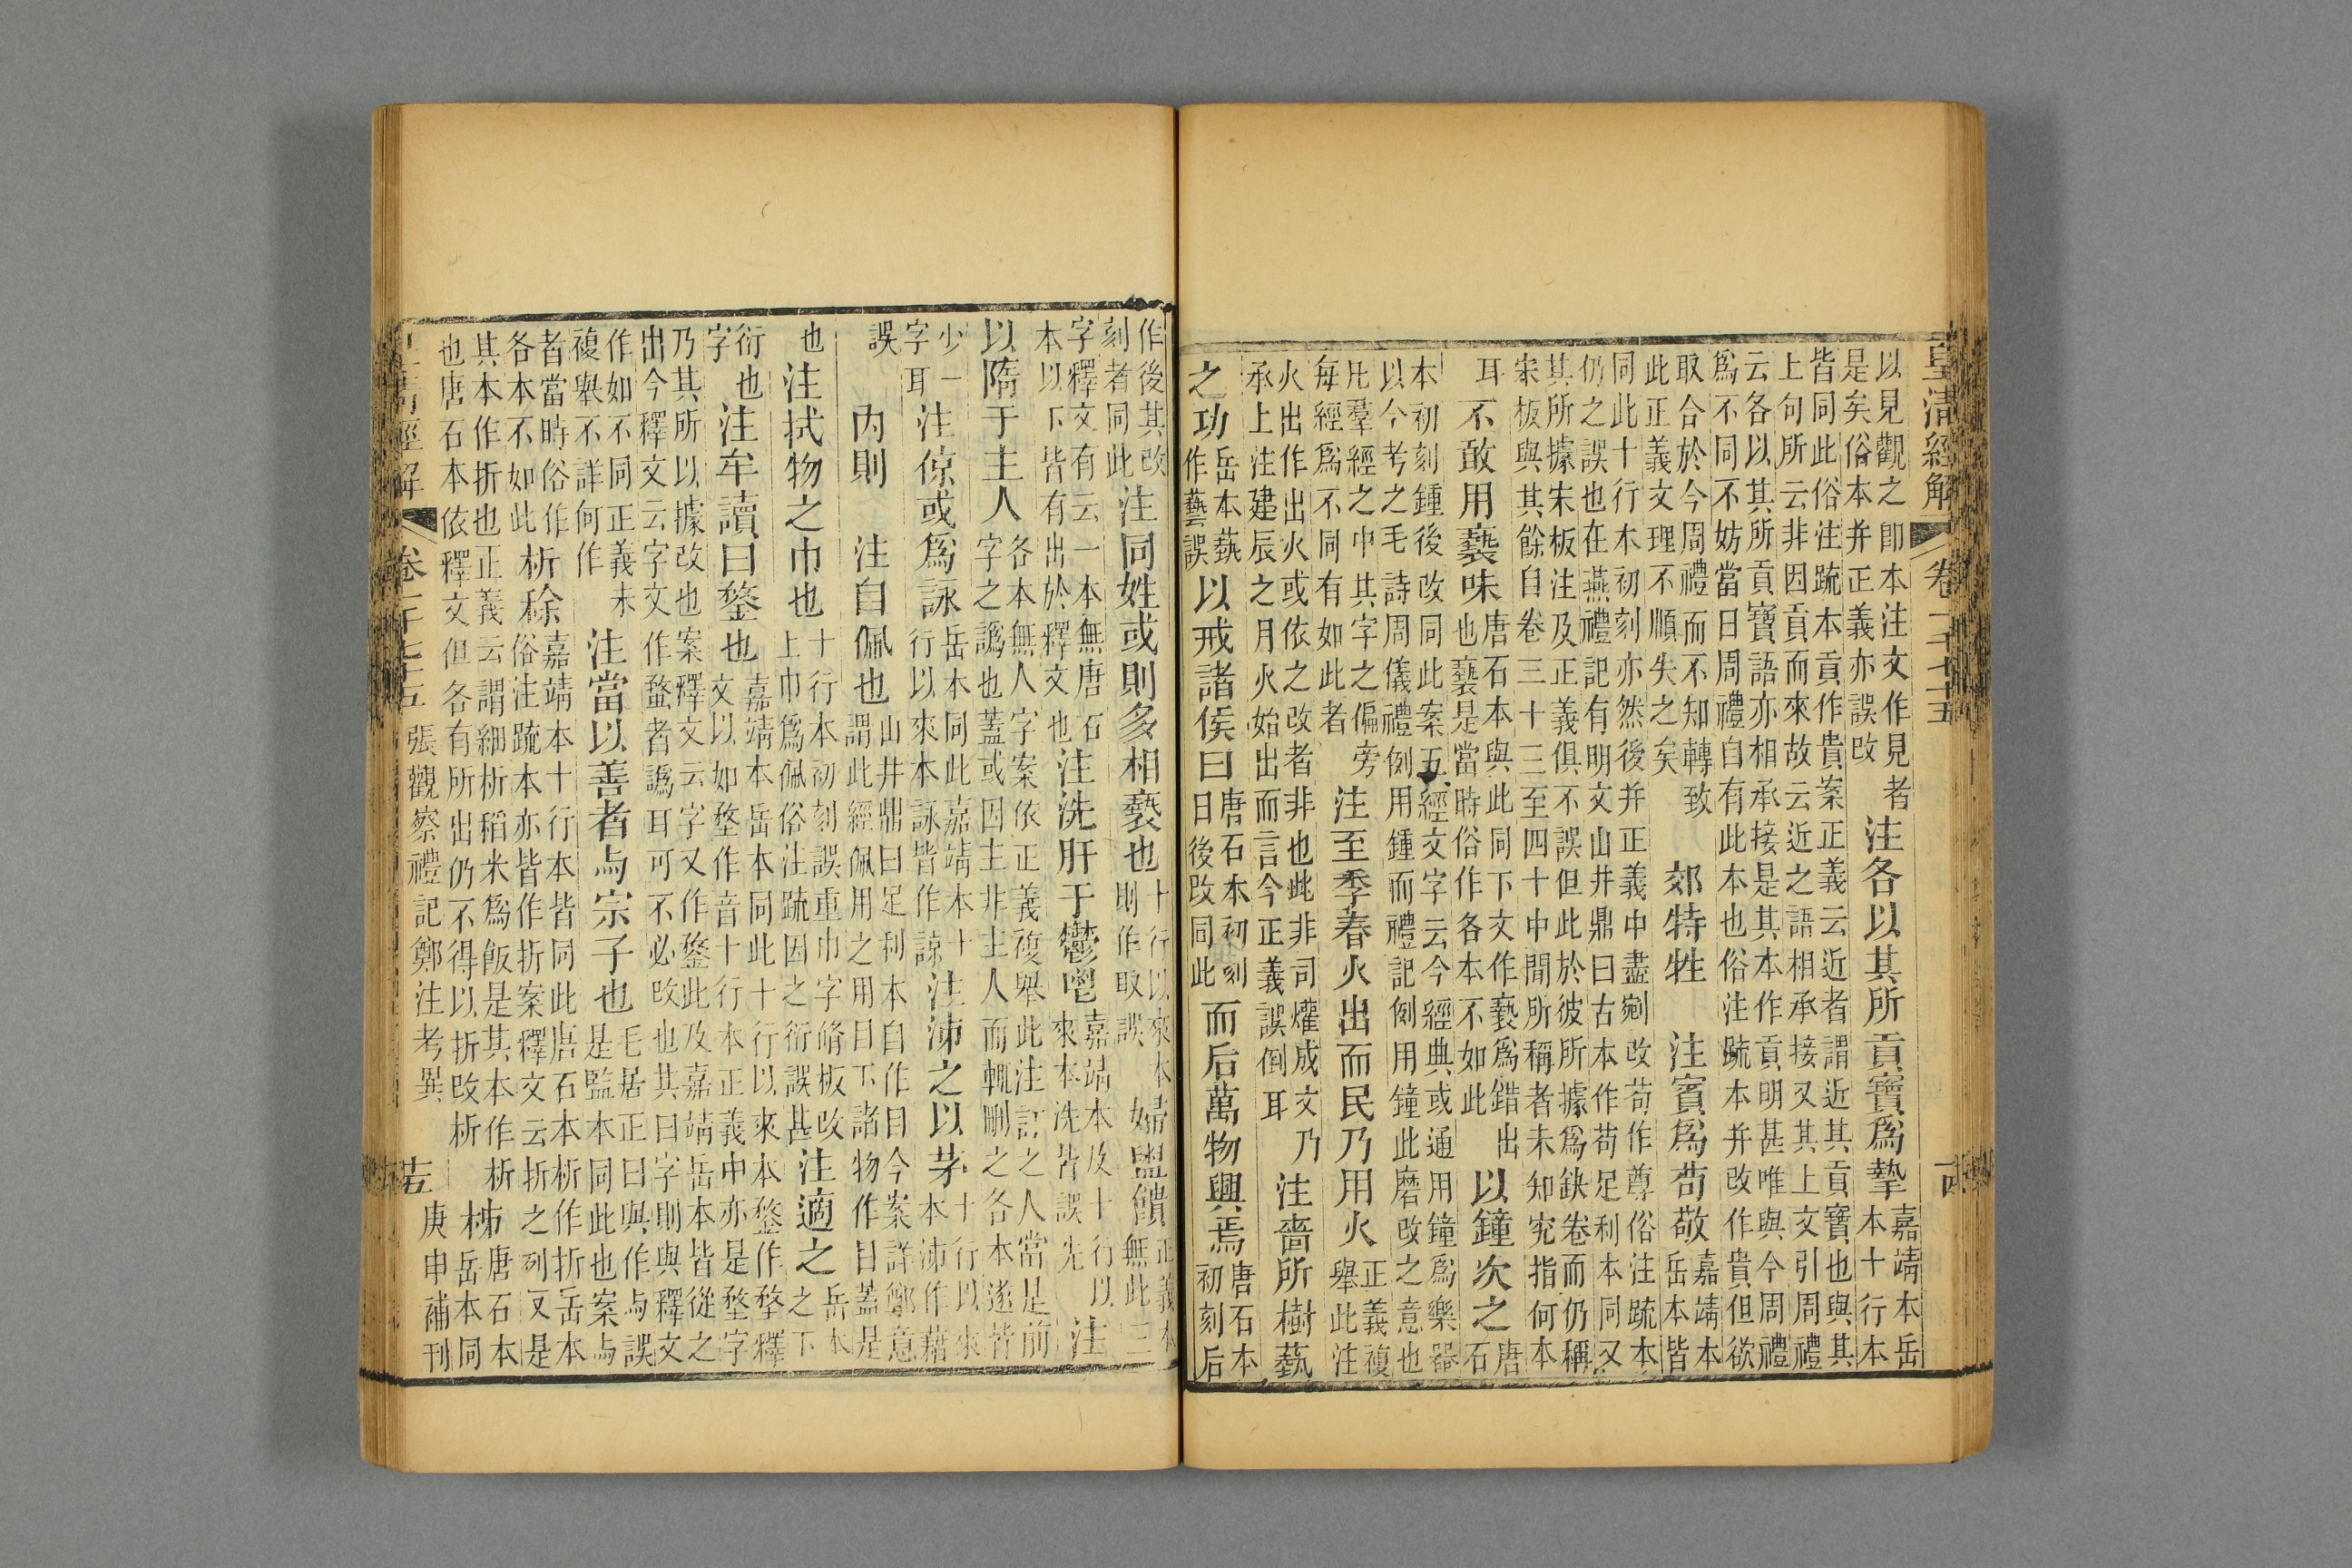 皇清經解 卷一千七十五 十四
以見觀之卽本注文作見者
是矣俗本并正義亦誤改
注各以其所貢寶爲摯
嘉靖本岳
本十行本
皆同此俗注疏本貢作貴案正義云近者謂近其貢寶也與其
上句所云非因貢而來故云近之語相承接又其上文引周禮
云各以其所貢寶語亦相承接是其本作貢明甚唯與今周禮
爲不同不妨當日周禮自有此本也俗注疏本并改作貴但欲
取合於今周禮而不知轉致
此正義文理不順失之矣
郊特牲 注賓爲苟敬
嘉靖本
岳本皆
同此十行本初刻亦然後并正義中盡剜改苟作尊俗注疏本
仍之誤也在燕禮記有明文山井鼎曰古本作苟足利本同又
其所據宋板注及正義俱不誤但此於彼所據爲缺卷而仍稱
宋板與其餘自卷三十三至四十中間所稱者未知究指何本
耳
不敢用褻味
唐石本與此同下文作褻爲錯出
也褻是當時俗作各本不如此
以鐘次之
唐
石
本初刻鍾後改同此案五經文字云今經典或通用鐘爲樂器
以今考之毛詩周儀禮例用鍾而禮記例用鐘此磨改之意也
凡羣經之中其字之偏旁
每經爲不同有如此者
注至季春火出而民乃用火
正義複
舉此注
火出作出火或依之改者非也此非司爟成文乃
承上注建辰之月火始出而言今正義誤倒耳
注嗇所樹蓺
之功
岳本蓺
作藝誤
以戒諸侯曰
唐石本初刻
日後改同此
而后萬物興焉
唐石本
初刻后
作後其改
刻者同此
注同姓或則多相褻也
十行以來本
則作取誤
婦盥饋
正義本
無此三
字釋文有云一本無唐石
本以下皆有出於釋文也
注洗肝于鬱鬯
嘉靖本及十行以
來本洗皆誤先
注
以隋于主人
各本無人字案依正義複舉此注訂之人當是前
字之譌也蓋或因主非主人而輒刪之各本遂皆
少一
字耳
注倞或爲詠
岳本同此嘉靖本十
行以來本詠皆作諒
注泲之以茅
十行以來
本泲作藉
誤
內則 注自佩也
山井鼎曰足利本自作曰今案詳鄭意
謂此經佩用之用曰下諸物作目蓋是
也
注拭物之巾也
十行本初刻誤重巾字脩板改
上巾爲佩俗注疏因之衍誤甚
注適之
岳本
之下
衍也
字
注牟讀曰堥也
嘉靖本岳本同此十行以來本堥作堥釋
文以如堥作音十行本正義中亦是堥字
乃其所以據改也案釋文云字又作堥此及嘉靖岳本皆從之
出今釋文云字文作蝥者譌耳可不必改也其曰字則與釋文
作如不同正義未
複舉不詳何作
注當以善者与宗子也
毛居正曰與作与誤
是監本同此也案与
者當時俗作
各本不如此
析稌
嘉靖本十行本皆同此唐石本析作折岳本
俗注疏本亦皆作折案釋文云折之列反是
其本作折也正義云謂細析稻米爲飯是其本作析
也唐石本依釋文但各有所出仍不得以折改析
柹
唐石本
岳本同
皇清經解 卷一千七十五 張觀察禮記鄭注考異 十五 庚申補刊